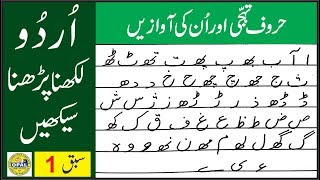 حروف تہجی اور اُن کی آوازیں
ا آ ب بھ پ پھ ت تھ ٹ ٹھ
ث ج جھ چ چھ ح خ د دھ
ڈ ڈھ ذ ر ڑ ڑھ ز ژ س ش
ص ض ط ظ ع غ ف ق ک کھ
گ گھ ل لھ م مھ ن نھ و وہ ہ
ء ی ے
اُردُو
لکھنا پڑھنا
سیکھیں
سبق 1